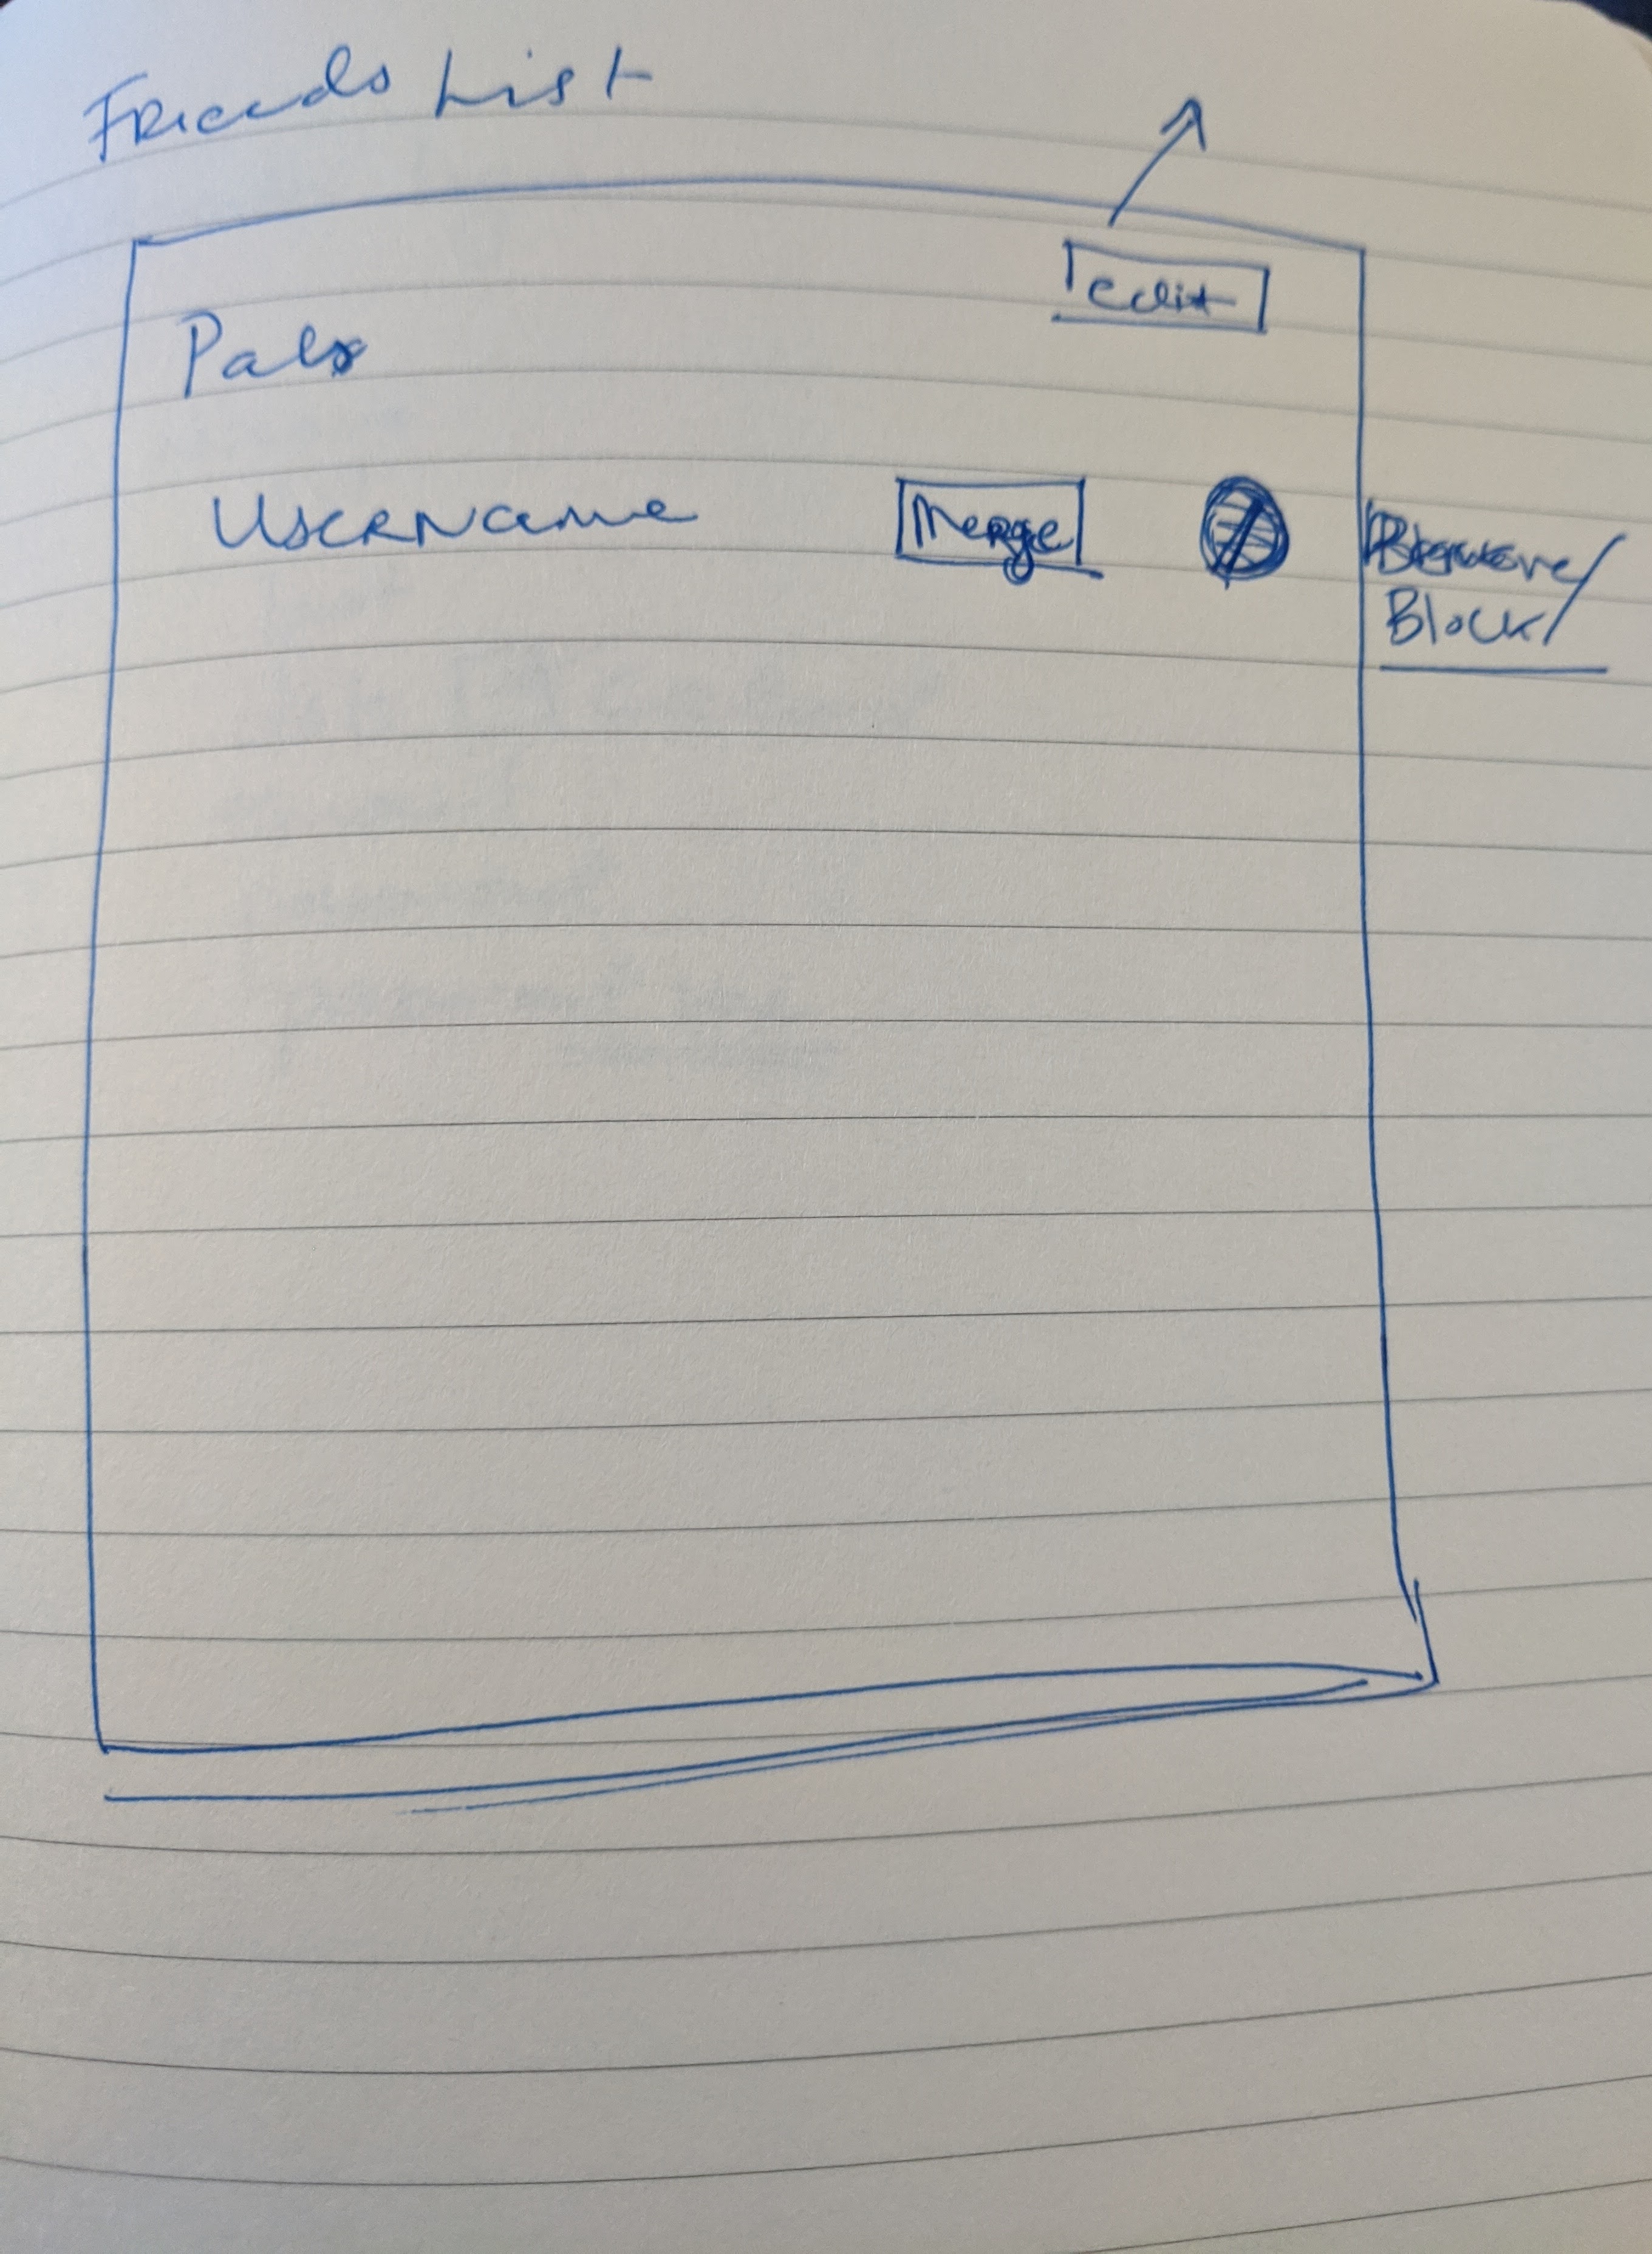 Friends List
edit
Pals
Username Merge
Block/